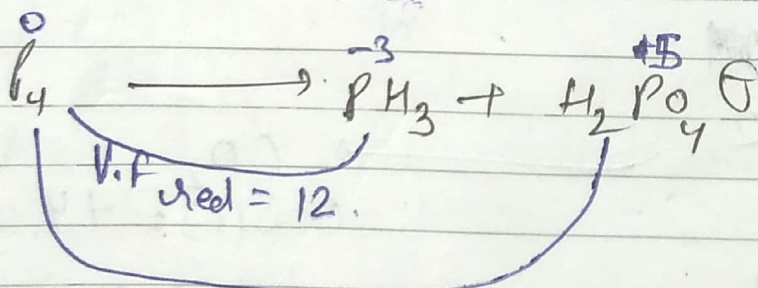 0 -3 +5
P4 → PH3 + H2PO4⊖
V.f red = 12.